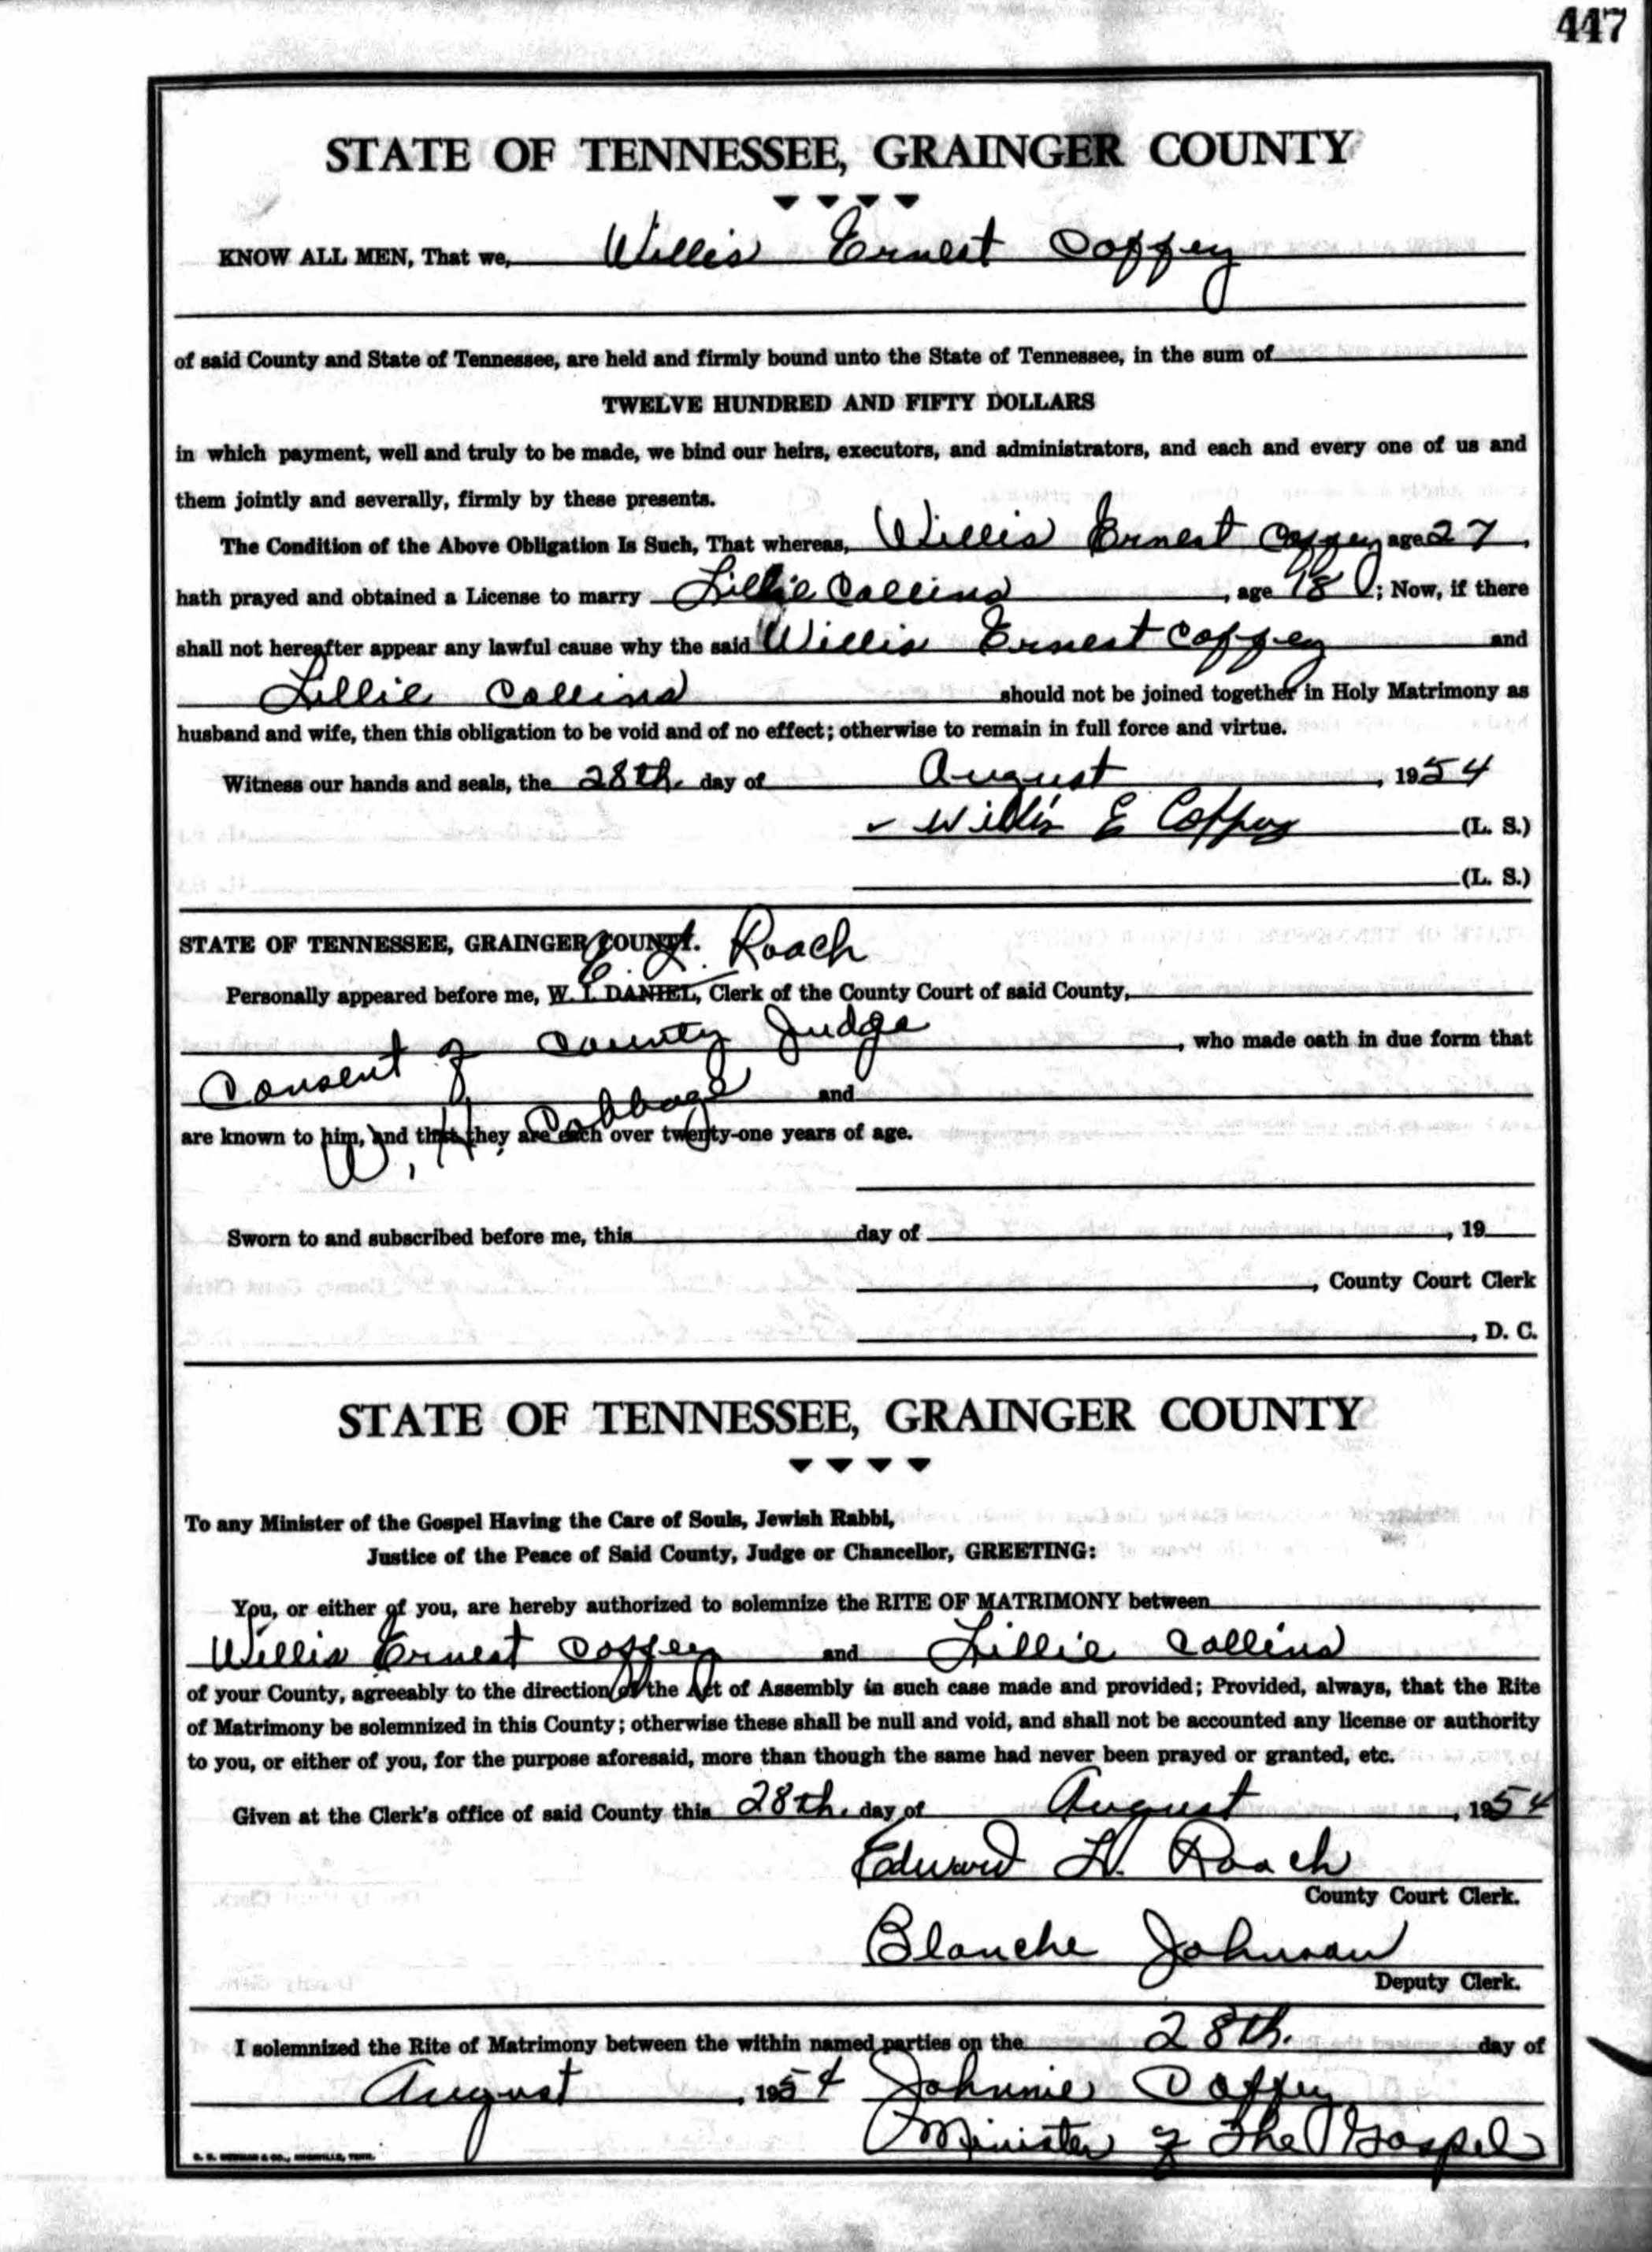 447
STATE OF TENNESSEE, GRAINGER COUNTY
KNOW ALL MEN, That we, Willis Ernest Coffey
of said County and State of Tennessee, are held and firmly bound unto the State of Tennessee, in the sum of
TWELVE HUNDRED AND FIFTY DOLLARS
in which payment, well and truly to be made, we bind our heirs, executors, and administrators, and each and every one of us and
them jointly and severally, firmly by these presents.
The Condition of the Above Obligation Is Such, That whereas, Willis Ernest Coffey, age 27,
hath prayed and obtained a License to marry Lillie Collins, age 18; Now, if there
shall not hereafter appear any lawful cause why the said Willis Ernest Coffey and
Lillie Collins should not be joined together in Holy Matrimony as
husband and wife, then this obligation to be void and of no effect; otherwise to remain in full force and virtue.
Witness our hands and seals, the 28th. day of August, 1954
Willis E Coffey (L. S.)
(L. S.)
STATE OF TENNESSEE, GRAINGER COUNTY.
E. L. Roach
Personally appeared before me, W. I. DANIEL, Clerk of the County Court of said County,
Consent of County Judge, who made oath in due form that
W. H. Cabbage and
are known to him, and that they are each over twenty-one years of age.
Sworn to and subscribed before me, this day of , 19
, County Court Clerk
, D. C.
STATE OF TENNESSEE, GRAINGER COUNTY
To any Minister of the Gospel Having the Care of Souls, Jewish Rabbi,
Justice of the Peace of Said County, Judge or Chancellor, GREETING:
You, or either of you, are hereby authorized to solemnize the RITE OF MATRIMONY between
Willis Ernest Coffey and Lillie Collins
of your County, agreeably to the direction of the Act of Assembly in such case made and provided; Provided, always, that the Rite
of Matrimony be solemnized in this County; otherwise these shall be null and void, and shall not be accounted any license or authority
to you, or either of you, for the purpose aforesaid, more than though the same had never been prayed or granted, etc.
Given at the Clerk's office of said County this 28th. day of August, 1954
Edward L. Roach
County Court Clerk.
Blanche Johnson
Deputy Clerk.
I solemnized the Rite of Matrimony between the within named parties on the 28th. day of
August, 1954 Johnnie Coffey
Minister of The Gospel